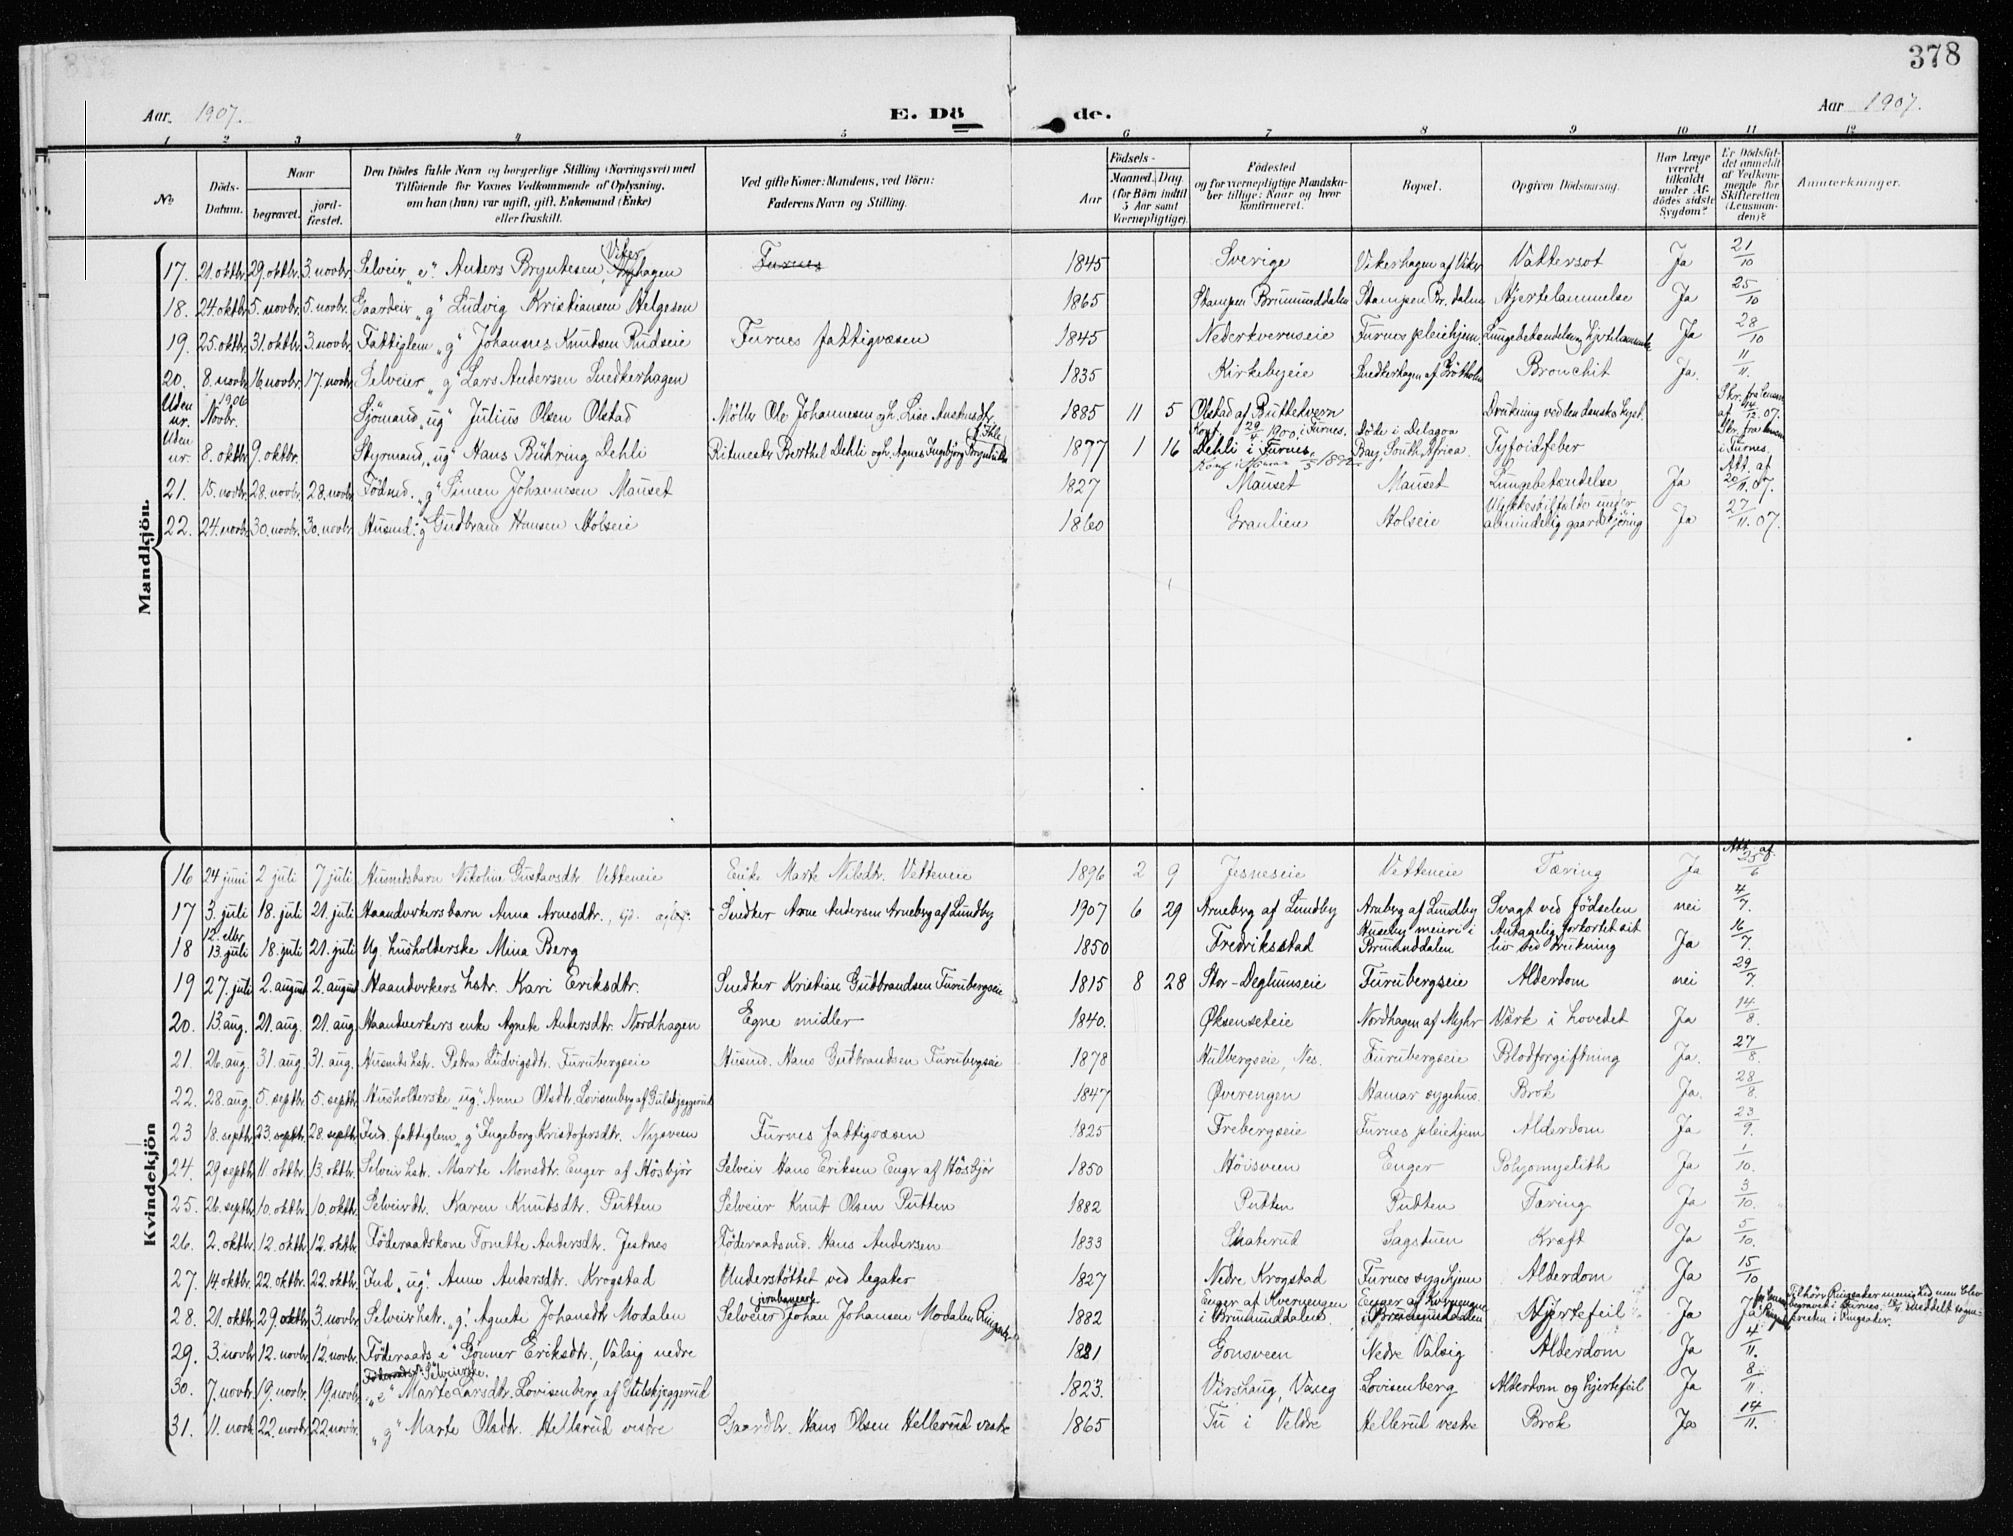 378
Aar 1907.
E. Dö de.
Aar 1907.
1 2 3 4 5 6 7 8 9 10 11 12
No
Döds-Datum.
Naar begravet. jordfæstet.
Den Dödes fulde Navn og borgerlige Stilling (Næringsvei) med Tilföiende for Voxnes Vedkommende af Oplysning, om han (hun) var ugift, gift, Enkemand (Enke) eller fraskilt.
Ved gifte Koner: Mandens, ved Börn: Faderens Navn og Stilling.
Födsels-
Aar Maaned. Dag (for Börn indtil 5 Aar samt Værnepligtige).
Födested og for værnepligtige Mandskaber tillige: Naar og hvor konfirmeret.
Bopæl.
Opgiven Dödsaarsag.
Har Læge været tilkaldt under Afdödes sidste Sygdom?
Er Dödsfaldet anmeldt af Vedkommende for Skifteretten (Lensmanden)?
Anmærkninger.
Mandkjön.
17. 21. oktbr. 29. oktbr. 3. novbr. Selveier „e" Anders Bryntesen Vikerhagen Furnes 1845 Sverige Vikerhagen af Viker Vattersot Ja 21/10
18. 24. oktbr. 5. novbr. 5. novbr. Gaardeier „g" Ludvig Kristiansen Helgesen 1865 Stampen Brummunddalen Stampen Br. dalen Hjertelammelse Ja 25/10
19. 25. oktbr. 31. oktbr. 3. novbr. Fattiglem „g" Johannes Knudsen Rudseie Furnes fattigvæsen 1845 Nederkvernseie Furnes pleiehjem Lungebetændelse, hjertelammelse Ja 28/10
20. 8. novbr. 16. novbr. 17. novbr. Selveier „g" Lars Andersen Snedkerhagen 1835 Kirkebyeie Snedkerhagen af Grötholm Bronchit Ja. 11/11.
Uden nr. 1906 Novbr. Sjömand „ug" Julius Olsen Olstad Möller Ole Johannesen og h. Lise 1885 11 5 Olstad af Buttekvern Konf. 29/4 1900 i Furnes. Drukning ved den danske kyst. Skr. fra lensm. af 14/12.07.
Uden nr. 8. oktbr. 9. oktbr. Styrmand „ug" Hans Bühring Dehli Ritmester Berthel Dehli og h. Agnes Ingebjörg f. Ihle 1877 1 16 Dehli i Furnes. Döde i Delagoa Bay, South Africa. Tyfoidfeber i Furnes.
21. 15. novbr. 28. novbr. 28. novbr. Födmd. „g" Simen Johannesen Mauset 1827 Mauset Mauset Lungebetændelse Ja Att. af 20/11.07.
22. 24. novbr. 30. novbr. 30. novbr. Husmd. „g" Gudbrand Hansen Holseie 1860 Granlien Holseie Ulykkestilfælde under almindelig gaardskjöring Ja 27/11.07.
Kvindekjön
16 24 juni 2 juli 7 juli Husmdsbarn Nikoline Gustavsdtr. Vetteneie Enke Marte Nilsdtr. Vetteneie 1896 2 9 Jesneseie Vetteneie Tæring Ja Att. af 25/6
17 3. juli 18. juli 21. juli Haandverkersbarn Anna Arnesdtr. Snedker Arne Andersen Arneberg af Lundby 1907 6 29 Arneberg af Lundby Arnberg af Lundby Svagt ved födselen nei 4/7.
18 12. eller 13. juli 18. juli 21. juli Ug. husholderske Mina Berg 1850 Fredriksstad Huseby meieri i Brumunddalen Antagelig forkortet sit liv ved drukning Ja 16/7.
19 27. juli 2. august 2. august Haandverkers hstr. Kari Eriksdtr. Snedker Kristian Gudbrandsen Furubergseie 1815 8 28 Stor-Deglumseie Furubergseie Alderdom nei 29/7.
20. 13. aug. 21. aug. 21. aug. Haandverkers enke Agnete Andersdtr. Nordhagen Egne midler 1840. Øksenseteie Nordhagen af Myhr Værk i hovedet Ja 14/8.
21. 26. aug. 31. aug. 31. aug. Husmds hstr. Petra Ludvigsdtr. Furubergseie Husmd. Hans Gudbrandsen Furubergseie 1878 Hulbergseie, Nes. Furubergseie Blodforgiftning Ja. 27/8.
22. 28. aug. 5. septbr. 5. septbr. Husholderske „ug". Anne Olsdtr. Lovisenberg af Gulskjeggerud 1847 Øverengen Hamar sygehus. Brok Ja. 28/8.
23 18. septbr. 23. septbr. 28. septbr. Ind. fattiglem „g" Ingeborg Kristofersdtr. Nysveen Furnes fattigvæsen 1825 Frebergseie Furnes pleiehjem Alderdom Ja 23/9.
24. 29. septbr. 11. oktbr. 13. oktbr. Selveir hstr. Marte Monsdtr. Enger af Hösbjör Selveir Hans Eriksen Enger af Hösbjör 1850 Höisveen Enger Polyomyelith Ja 1/10.
25. 26. septbr. 10. oktbr. 10. oktbr. Selveirdtr. Karen Knutsdtr. Putten Selveier Knut Olsen Putten 1882 Putten Putten Tæring Ja 3/10.
26. 2. oktbr. 12. oktbr. 12. oktbr. Föderaadskone Tonette Andersdtr. Jestnes Föderaadsmd. Hans Andersen 1833 Skaterud Sagstuen Kræft Ja 5/10.
27. 14. oktbr. 22. oktbr. 22. oktbr. Ind „ug". Anne Andersdtr. Krogstad Understöttet ved legater 1827 Nedre Krogstad Furnes sygehjem Alderdom Ja 15/10
28. 21. oktbr. 29. oktbr. 3. novbr. Selveir hstr. „g". Agnete Johansdtr. Modalen Selveier jernbanearb. Johan Johansen Modalen Ringsaker 1882 Enger af Kvernengen i Brumunddalen. Enger af Kvernengen i Brumunddalen Hjertefeil Ja Ja Tilhörer Ringsaker menighed men blev begravet i Furnes. meddelt sognepresten i Ringsaker.
29. 3. novbr. 12. novbr. 12. novbr. Föderaads e" Gonner Eriksdtr. Valsig nedre 1821 Gonsveen Nedre Valsig Alderdom Ja 4/11.
30. 7. novbr. 19. novbr. 19. novbr. Selveierske. „e" Marte Larsdtr. Lovisenberg af Gulskjeggerud 1823. Virshaug, Vaseg Lovisenberg Alderdom og hjertefeil Ja 8/11.
31. 11. novbr. 22. novbr. 22. novbr. „g" Marte Olsdtr. Hellerud vestre Gaardbr. Hans Olsen Hellerud vestre 1865 Tu i Veldre Hellerud vestre Brok Ja 14/11.